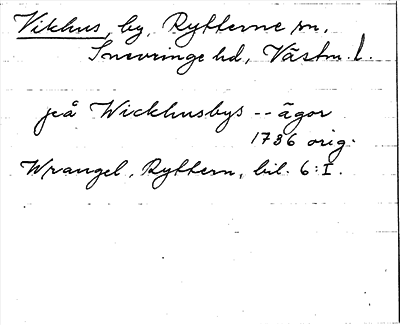 Vikhus, by, Rytterne sn,
Snevringe hd, Västm. l.
på Wickhusbys -- ägor
1786 orig.
Wrangel, Ryttern, bil. 6:I.